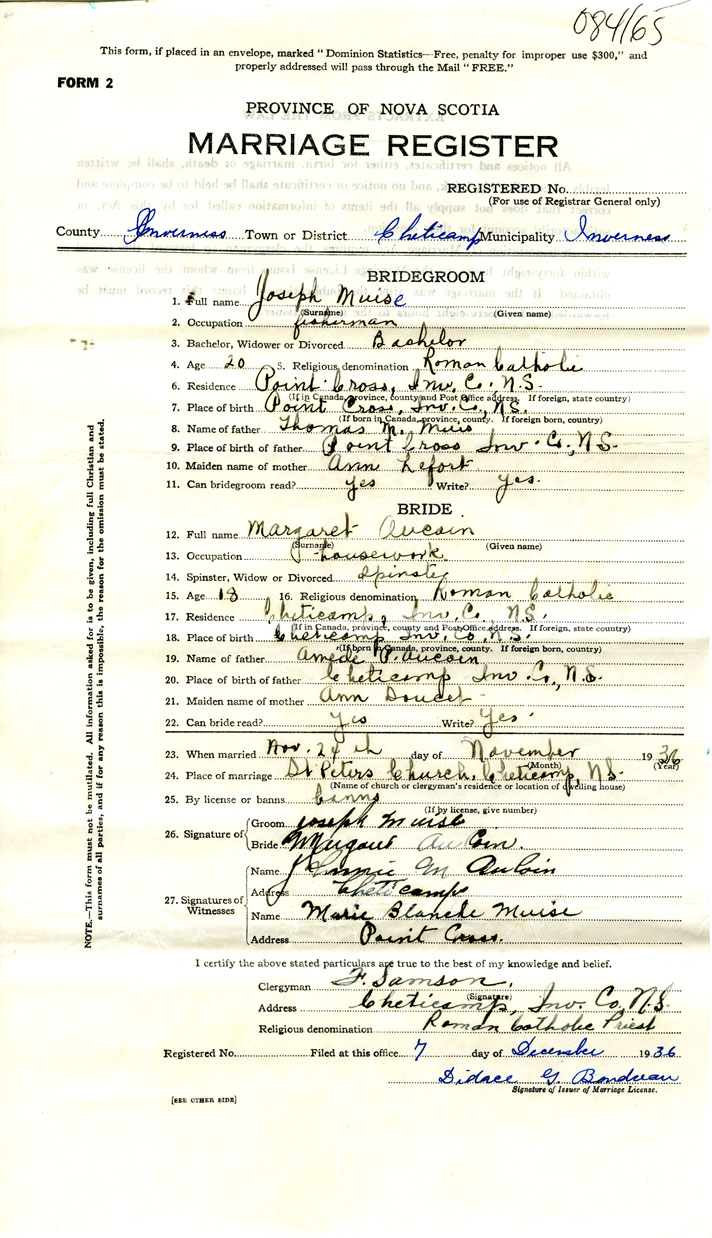 084/65
This form, if placed in an envelope, marked "Dominion Statistics—Free, penalty for improper use $300," and
properly addressed will pass through the Mail "FREE."
FORM 2
PROVINCE OF NOVA SCOTIA
MARRIAGE REGISTER
REGISTERED No.
(For use of Registrar General only)
County Inverness Town or District Cheticamp Municipality Inverness
BRIDEGROOM
1. Full name Joseph Muise
(Surname) (Given name)
2. Occupation fisherman
3. Bachelor, Widower or Divorced Bachelor
4. Age 20 5. Religious denomination Roman Catholic
6. Residence Point Cross, Inv. Co. N.S.
(If in Canada, province, county and Post Office address. If foreign, state country)
7. Place of birth Point Cross, Inv. Co., N.S.
(If born in Canada, province, county. If foreign born, country)
8. Name of father Thomas M. Muis
9. Place of birth of father Point Cross Inv. Co., N.S.
10. Maiden name of mother Ann Lefort
11. Can bridegroom read? yes Write? yes.
BRIDE
12. Full name Margaret Aucoin
(Surname) (Given name)
13. Occupation housework
14. Spinster, Widow or Divorced Spinster
15. Age 18 16. Religious denomination Roman Catholic
17. Residence Cheticamp, Inv. Co. N.S.
(If in Canada, province, county and Post Office address. If foreign, state country)
18. Place of birth Cheticamp Inv. Co. N.S.
(If born in Canada, province, county. If foreign born, country)
19. Name of father Amede P. Aucoin
20. Place of birth of father Cheticamp Inv. Co., N.S.
21. Maiden name of mother Ann Doucet
22. Can bride read? yes Write? yes
23. When married Nov. 24th day of November 1936
(Month) (Year)
24. Place of marriage St Peters Church, Cheticamp, N.S.
(Name of church or clergyman's residence or location of dwelling house)
25. By license or banns banns
(If by license, give number)
26. Signature of Groom Joseph Muise
Bride Margaret AuCoin.
27. Signatures of Witnesses Name M AuCoin
Address Cheticamp
Name Marie Blanche Muise
Address Point Cross.
I certify the above stated particulars are true to the best of my knowledge and belief.
Clergyman F. Samson,
(Signature)
Address Cheticamp, Inv. Co, N.S.
Religious denomination Roman Catholic Priest
Registered No. Filed at this office 7 day of December 1936
Didace G. Boudreau
Signature of Issuer of Marriage License.
[SEE OTHER SIDE]
NOTE.—This form must not be mutilated. All information asked for is to be given, including full Christian and
surnames of all parties, and if for any reason this is impossible, the reason for the omission must be stated.